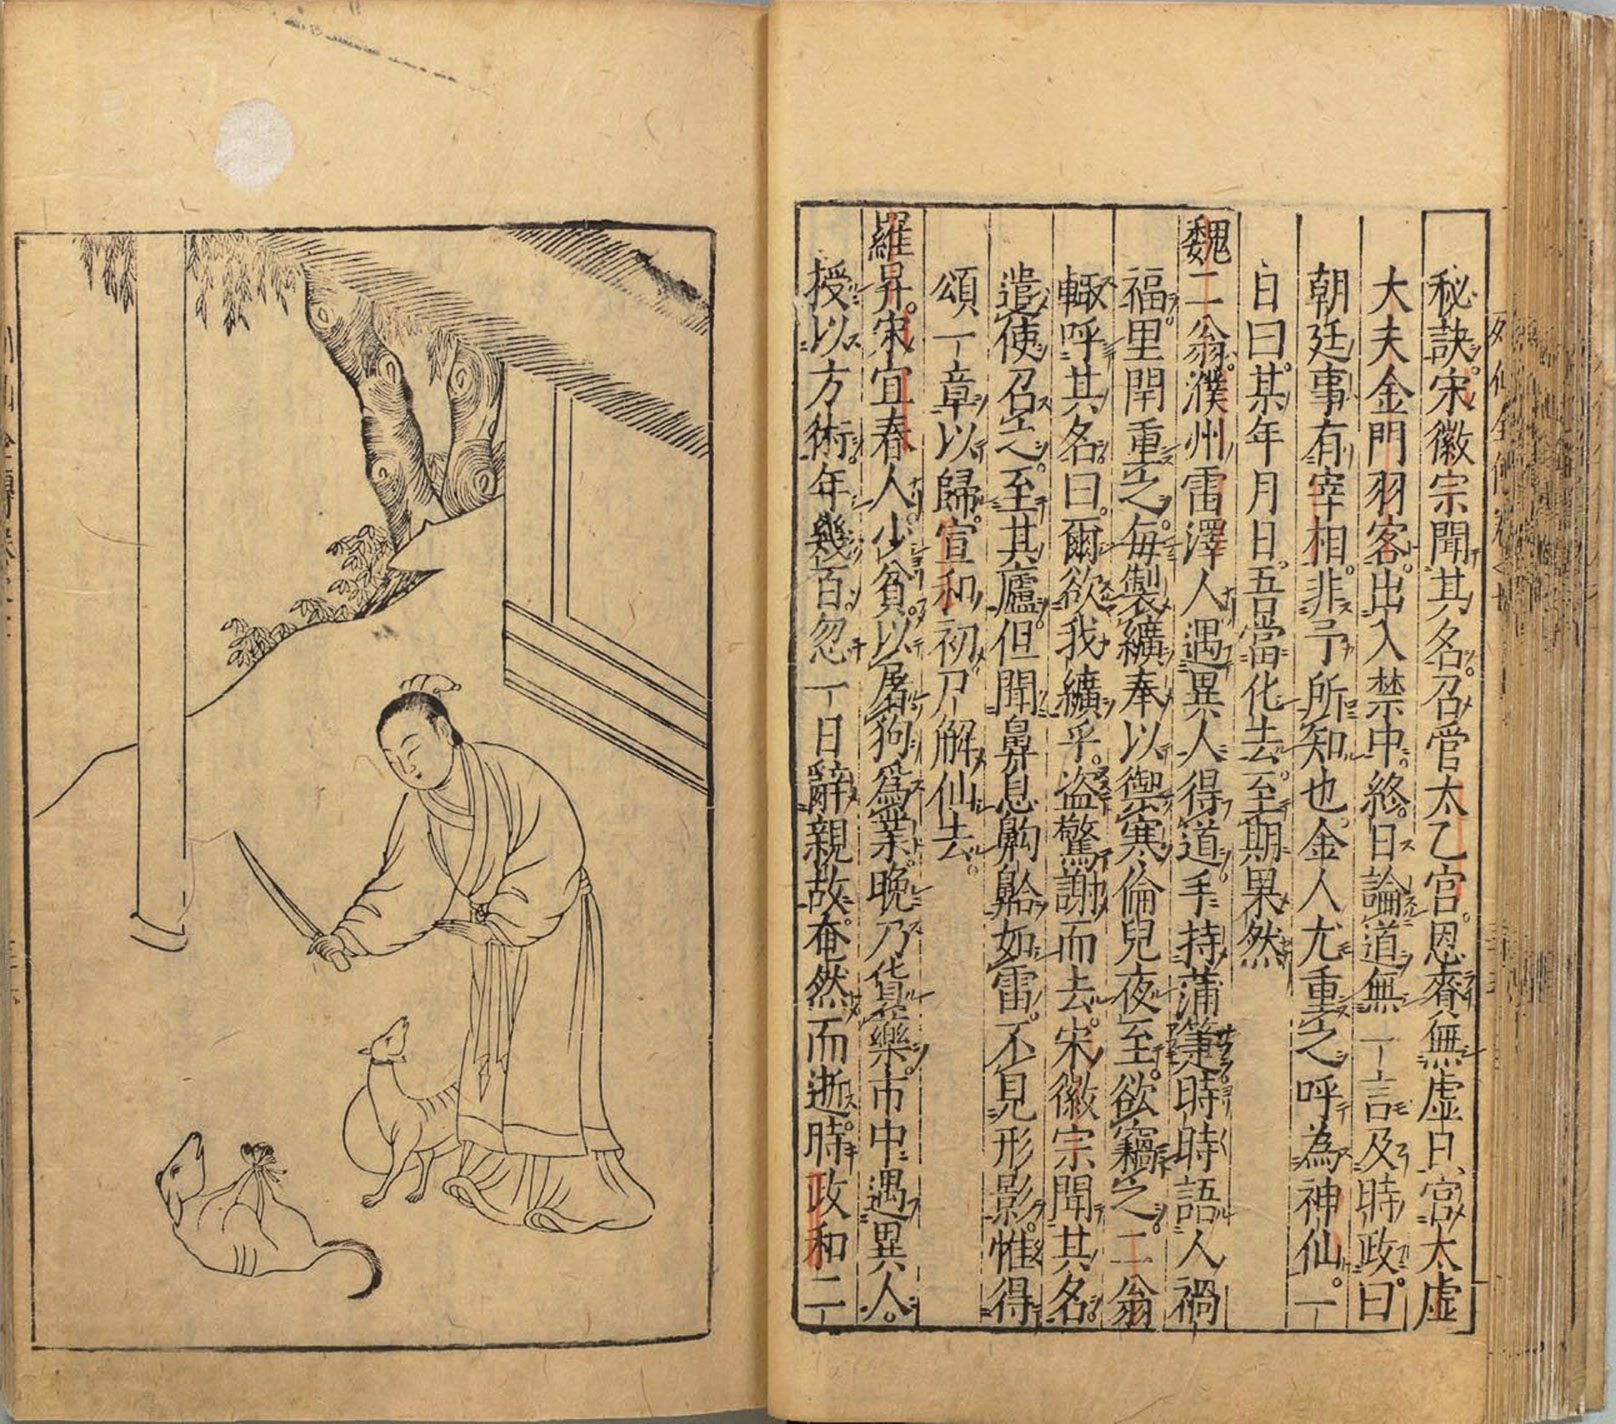 秘訣。宋徽宗聞其名。召管太乙宮。恩賚無虛日。官太虛
大夫金門羽客。出入禁中。終日論道無一言及時政。曰
朝廷事有宰相。非予所知也。金人尤重之呼為神仙。一
日曰。某年月日。吾當化去。至期果然
魏二翁。濮州雷澤人遇異人得道。手持蒲箑時時語人禍
福。里閈重之。每製纊奉以禦寒偷兒夜至。欲竊之。二翁
輙呼其名曰。爾欲我纊乎。盗驚謝而去。宋徽宗聞其名。
遣使召之。至其廬。但聞鼻息齁鼾如雷。不見形影。惟得
頌一章以歸。宣和初尸解仙去。
羅昇。宋宜春人。少貧。以屠狗爲業。晚乃貨藥。市中遇異人。
授以方術。年幾百。忽一日辭親故。奄然而逝。時政和二